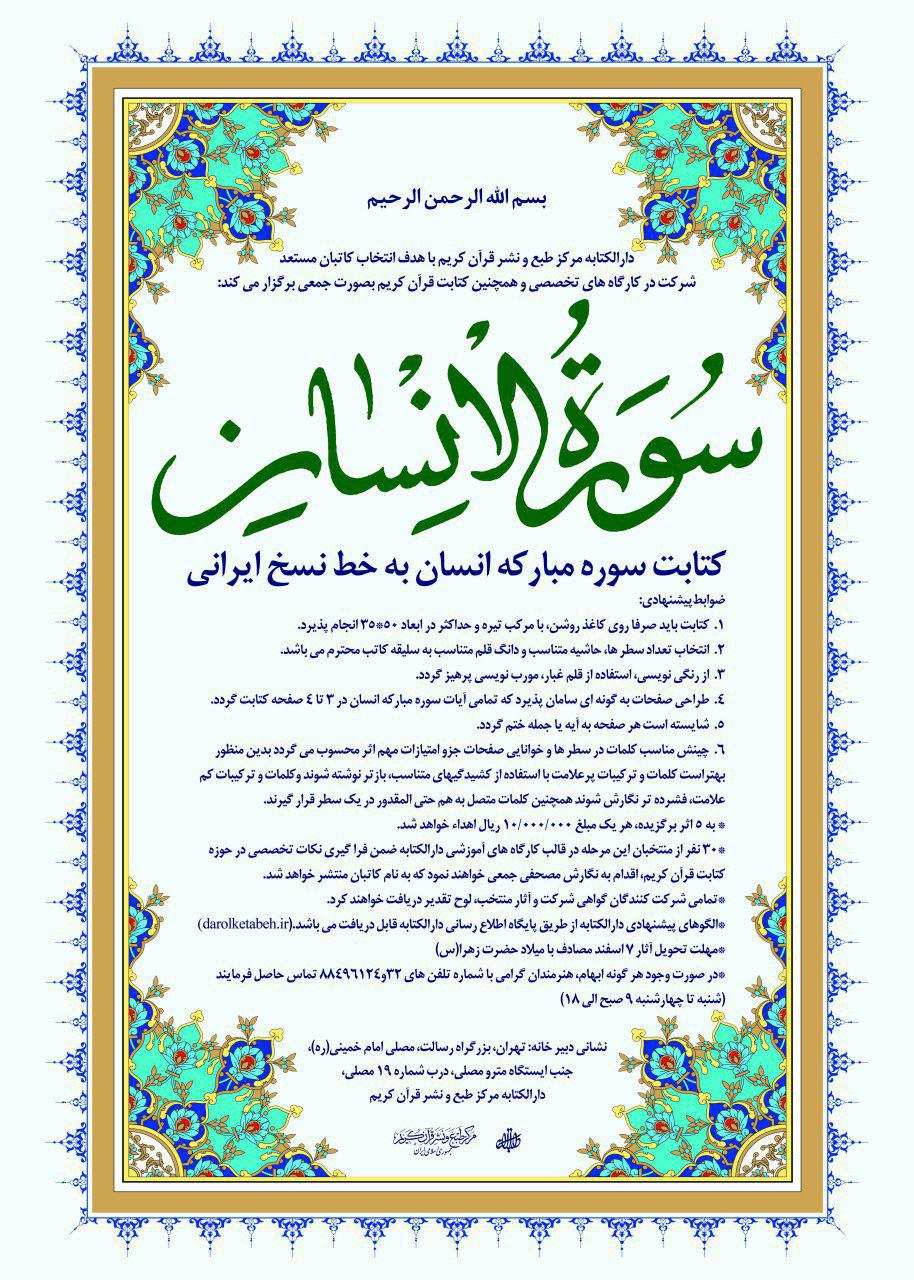 بسم الله الرحمن الرحیم
دارالکتابه مرکز طبع و نشر قرآن کریم با هدف انتخاب کاتبان مستعد
شرکت در کارگاه های تخصصی و همچنین کتابت قرآن کریم بصورت جمعی برگزار می کند:
سُورَةُ الْاِنْسان
کتابت سوره مبارکه انسان به خط نسخ ایرانی
ضوابط پیشنهادی:
۱. کتابت باید صرفا روی کاغذ روشن، با مرکب تیره و حداکثر در ابعاد ۵۰*۳۵ انجام پذیرد.
۲. انتخاب تعداد سطر ها، حاشیه متناسب و دانگ قلم متناسب به سلیقه کاتب محترم می باشد.
۳. از رنگی نویسی، استفاده از قلم غبار، مورب نویسی پرهیز گردد.
٤. طراحی صفحات به گونه ای سامان پذیرد که تمامی آیات سوره مبارکه انسان در ۳ تا ٤ صفحه کتابت گردد.
۵. شایسته است هر صفحه به آیه یا جمله ختم گردد.
٦. چینش مناسب کلمات در سطر ها و خوانایی صفحات جزو امتیازات مهم اثر محسوب می گردد بدین منظور
بهتراست کلمات و ترکیبات پرعلامت با استفاده از کشیدگیهای متناسب، بازتر نوشته شوند وکلمات و ترکیبات کم
علامت، فشرده تر نگارش شوند همچنین کلمات متصل به هم حتی المقدور در یک سطر قرار گیرند.
* به ۵ اثر برگزیده، هر یک مبلغ ۱۰/۰۰۰/۰۰۰ ریال اهداء خواهد شد.
*۳۰ نفر از منتخبان این مرحله در قالب کارگاه های آموزشی دارالکتابه ضمن فرا گیری نکات تخصصی در حوزه
کتابت قرآن کریم، اقدام به نگارش مصحفی جمعی خواهند نمود که به نام کاتبان منتشر خواهد شد.
*تمامی شرکت کنندگان گواهی شرکت و آثار منتخب، لوح تقدیر دریافت خواهند کرد.
*الگوهای پیشنهادی دارالکتابه از طریق پایگاه اطلاع رسانی دارالکتابه قابل دریافت می باشد.(darolketabeh.ir)
*مهلت تحویل آثار ۷ اسفند مصادف با میلاد حضرت زهرا(س)
*در صورت وجود هر گونه ابهام، هنرمندان گرامی با شماره تلفن های ۳۲و۸۸٤۹٦۱۲٤ تماس حاصل فرمایند
(شنبه تا چهارشنبه ۹ صبح الی ۱۸)
نشانی دبیر خانه: تهران، بزرگراه رسالت، مصلی امام خمینی(ره)،
جنب ایستگاه مترو مصلی، درب شماره ۱۹ مصلی،
دارالکتابه مرکز طبع و نشر قرآن کریم
مرکز طبع و نشر قرآن کریم
جمهوری اسلامی ایران